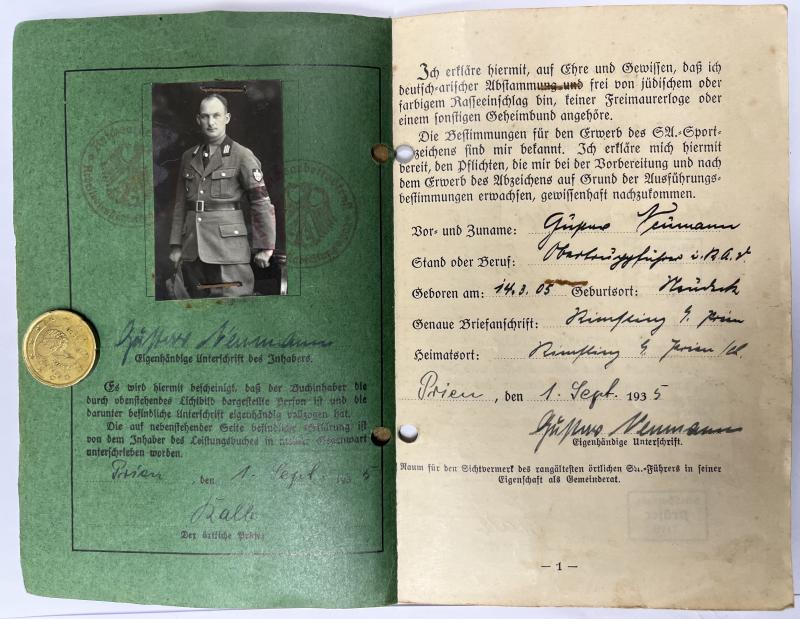 Gustav Neumann
Eigenhändige Unterschrift des Inhabers.
Es wird hiermit bescheinigt, daß der Buchinhaber die
durch obenstehendes Lichtbild dargestellte Person ist und die
darunter befindliche Unterschrift eigenhändig vollzogen hat.
Die auf nebenstehender Seite befindliche Erklärung ist
von dem Inhaber des Leistungsbuches in meiner Gegenwart
unterschrieben worden.
Prien, den 1. Sept. 1935
Kalb
Der örtliche Prüfer
Ich erkläre hiermit, auf Ehre und Gewissen, daß ich
deutsch-arischer Abstammung und frei von jüdischem oder
farbigem Rasseeinschlag bin, keiner Freimaurerloge oder
einem sonstigen Geheimbund angehöre.
Die Bestimmungen für den Erwerb des SA.-Sport-
abzeichens sind mir bekannt. Ich erkläre mich hiermit
bereit, den Pflichten, die mir bei der Vorbereitung und nach
dem Erwerb des Abzeichens auf Grund der Ausführungs-
bestimmungen erwachsen, gewissenhaft nachzukommen.
Vor- und Zuname: Gustav Neumann
Stand oder Beruf: Obertruppführer i. R.A.D.
Geboren am: 14.3.05 Geburtsort: Neudeck
Genaue Briefanschrift: Rimsting b. Prien
Heimatsort: Rimsting b. Prien
Prien, den 1. Sept. 1935
Gustav Neumann
Eigenhändige Unterschrift.
Raum für den Sichtvermerk des rangältesten örtlichen SA.-Führers in seiner
Eigenschaft als Gemeinderat.
— 1 —